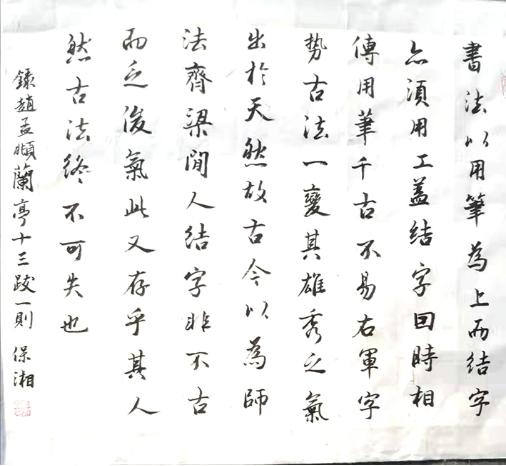 書法以用筆為上而結字
亦須用工蓋結字因時相
傳用筆千古不易右軍字
势古法一變其雄秀之氣
出於天然故古今以為師
法齊梁間人結字非不古
而乏俊氣此又存乎其人
然古法終不可失也
錄趙孟頫蘭亭十三跋一則 保湘